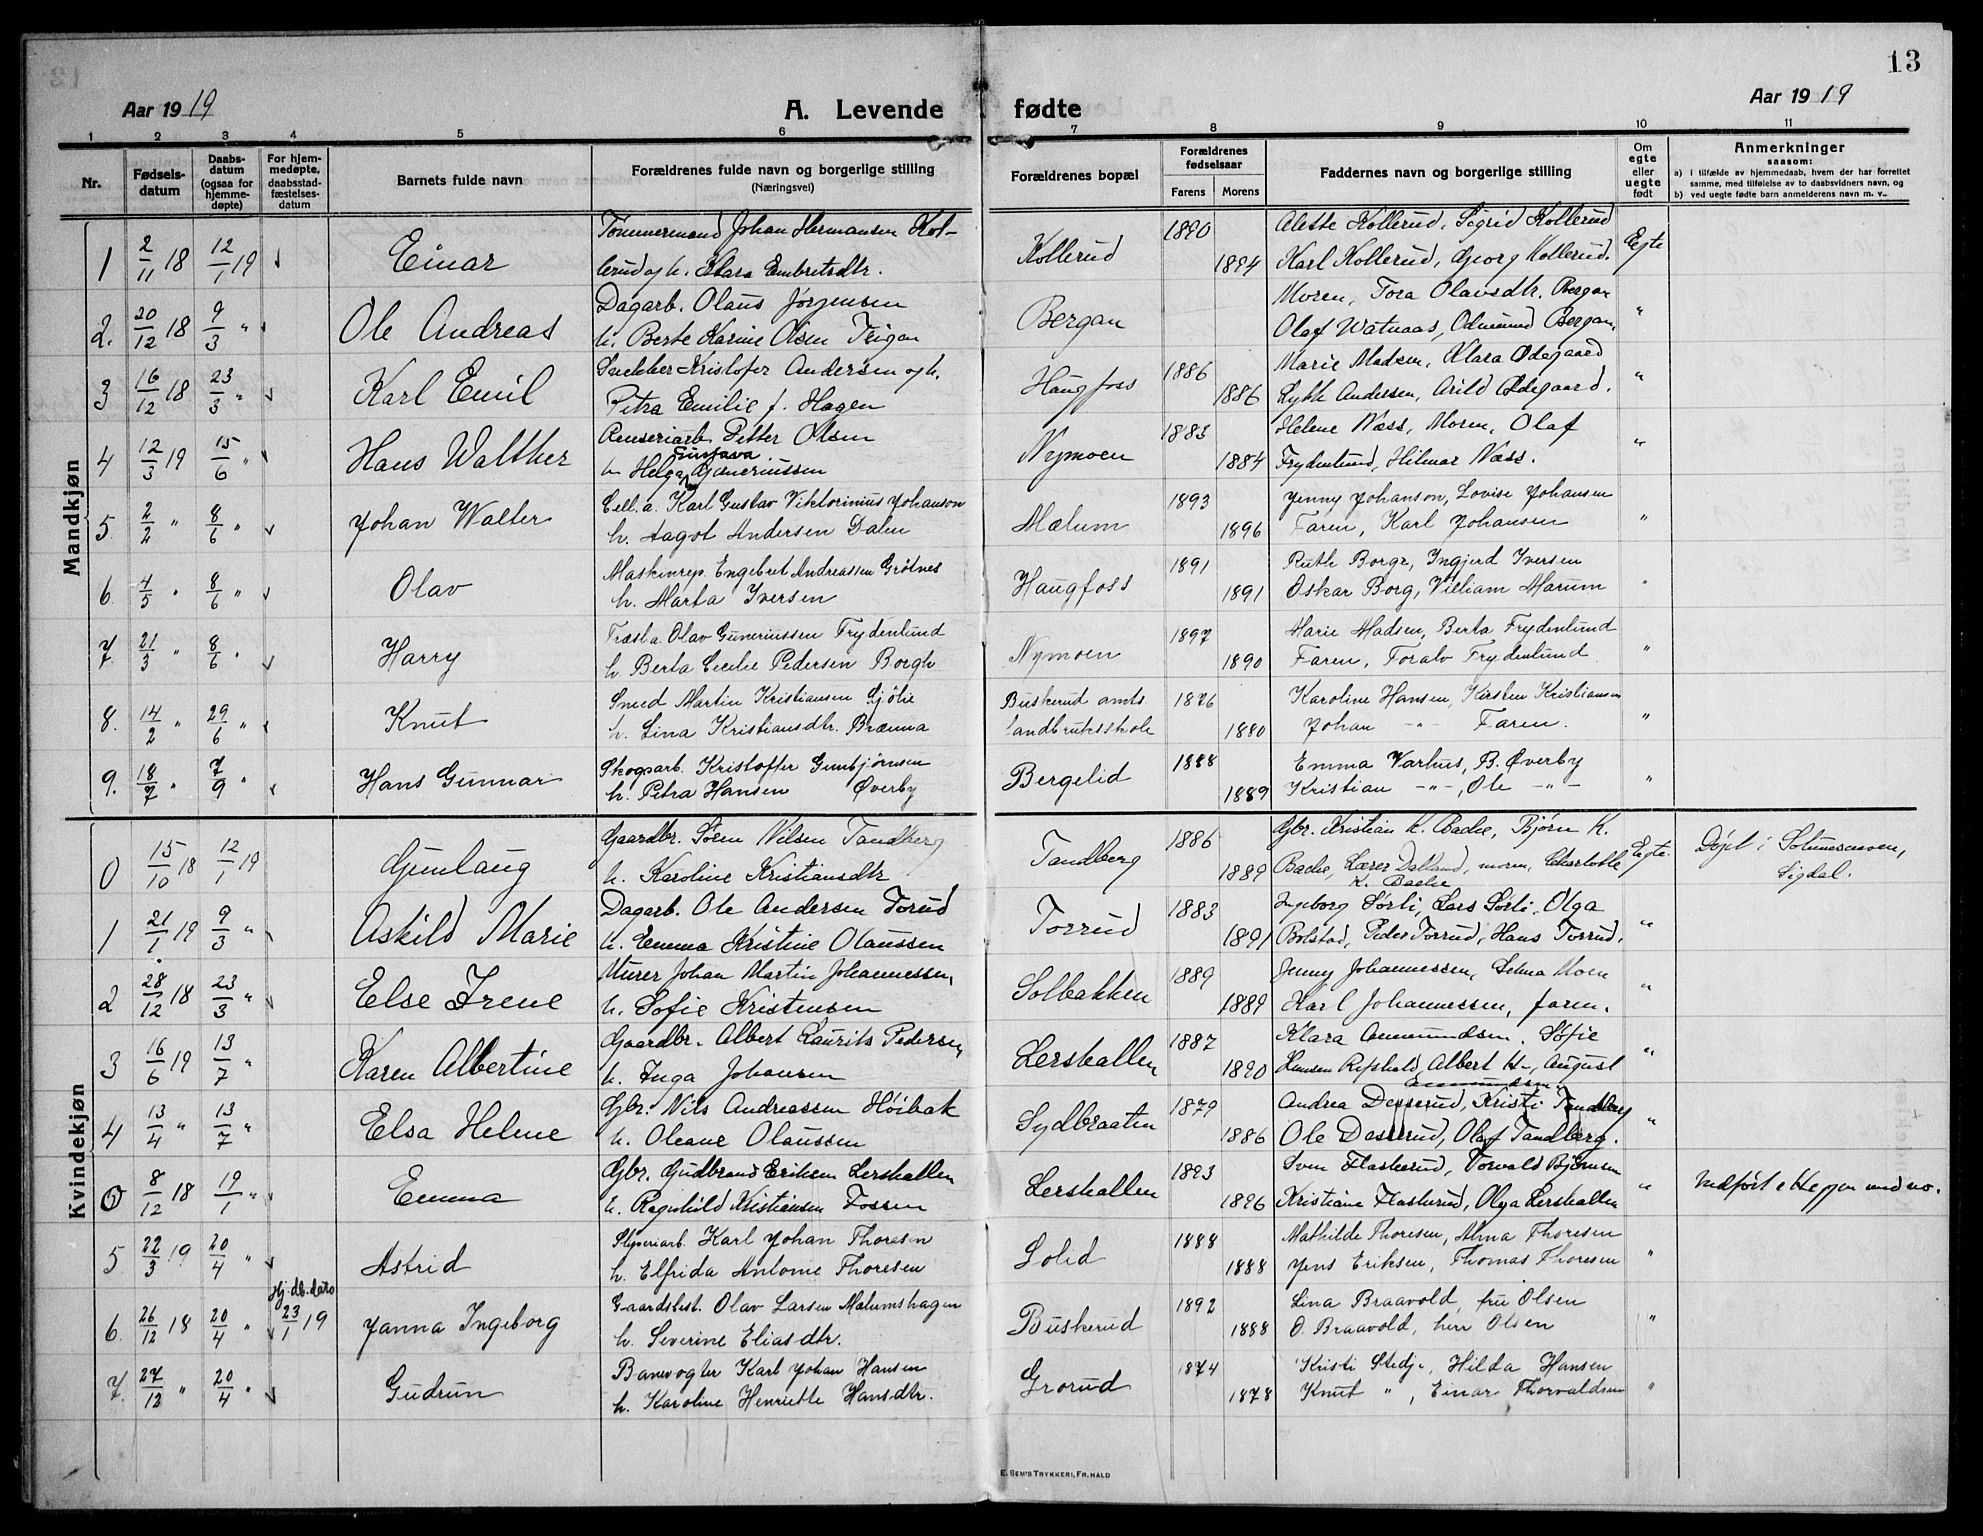 13
Aar 1919
A. Levende fødte
Aar 1919
1 2 3 4 5 6 7 8 9 10 11
Nr.
Fødsels-datum
Daabs-datum (ogsaa for hjemme-døpte)
For hjem-medøpte, daabsstad-fæstelses-datum
Barnets fulde navn
Forældrenes fulde navn og borgerlige stilling
(Næringsvei)
Forældrenes bopæl
Forældrenes fødselsaar
Farens Morens
Faddernes navn og borgerlige stilling
Om egte eller uegte født
Anmerkninger
saasom:
a) i tilfælde av hjemmedaab, hvem der har forrettet
samme, med tilføielse av to daabsvidners navn, og
b) ved uegte født barn anmelderens navn m. v..
Mandkjøn
1 2/11 18 12/1 19 Einar Tømmermand Johan Hermansen Kol- Kollerud 1890 Alette Kollerud, Sigrid Kollerud Egte
lerud og h. Klara Embretsdtr. 1894 Karl Kollerud, Georg Kollerud.
2. 20/12 18 9/3 " Ole Andreas Dagarb. Olaus Jørgensen Bergan Moren, Tora Olavsdtr. Bergan "
h. Berte Karine Olsen Olaf Watnaas, Odmund Bergan.
3 16/12 18 23/3 " Karl Emil Snekker Kristofer Andersen og h. Haugfoss 1886 Marie Madsen, Klara Ødegaard "
Petra Emilie f. Hagen 1886 Lykke Andersen, Arild Ødegaard.
4 12/3 19 15/6 " Hans Walther Renseriarb. Petter Olsen Nymoen 1883 Helene Næss, Moren, Olaf "
Gustava
h. Helga Guneriussen 1884 Frydenlund, Hilmar Næss.
5 2/2 " 8/6 " Johan Walter Cell.a. Karl Gustav Viktorinius Johanson Mælum 1893 Jenny Johanson, Lovise Johansen "
h. Aagot Andersen Dalen 1896 Faren, Karl Johansen
6. 4/5 " 8/6 " Olav Maskinrep. Engebret Andreassen Grøtnes Haugfoss 1891 Ruth Borge, Ingjerd Iversen "
h. Marta Iversen 1891 Oskar Borg, William Marum
7. 21/3 " 8/6 " Harry Træsl.a. Olav Guneriussen Frydenlund Nymoen 1897 Marie Madsen, Berta Frydenlund "
h. Berta Cecilie Pedersen Borgh 1890 Faren, Toralv Frydenlund
8. 14/2 " 29/6 " Knut Smed Martin Kristiansen Sjølie Buskerud amts 1876 Karoline Hansen, Kirsten Kristiansen
h. Lina Kristiansdtr. Brænna landbruksskole 1880 Johan -"- Faren. "
9. 18/7 " 7/9 " Hans Gunnar Skogsarb. Kristoffer Gunbjørnsen Bergelid 1888 Emma Varhus, B. Øverby "
h. Petra Hansen Øverby 1889 Kristian -"-, Ole -"-
Kvindekjøn
0 15/10 18 12/1 19 Gunlaug Gaardbr. Søren Nilsen Tandberg Tandberg 1886 Gbr. Kristian K. Bache, Bjørn K. Egte. Døpt i Solumsmoen,
h. Karoline Kristiansdtr 1889 Bache, Lærer Dalland, moren, Charlotte Sigdal.
K. Bache
1 21/1 19 9/3 " Askild Marie Dagarb. Ole Andersen Torud Torrud 1883 Ingeborg Sørli, Lars Sørli, Olga "
h. Emma Kristine Olaussen 1891 Bolstad, Peder Torrud, Hans Torrud.
2 28/12 18 23/3 " Else Irene Murer Johan Martin Johannessen, Solbakken 1889 Jenny Johannessen, Selma Moen "
h. Sofie Kristensen 1889 Karl Johannessen, faren.
3 16/6 19 13/7 " Karen Albertine Gaardbr. Albert Laurits Pedersen, Lershallen 1887 Klara Ammundsen, Sofie "
h. Inga Johansen 1890 Albert H-, August
Ammundsen
4 13/4 " 13/7 " Elsa Helene Gbr. Nils Andreassen Høibak Sydbraaten 1879 Andrea Desserud, Kristi Tandberg "
h. Oleane Olaussen 1886 Ole Desserud, Olaf Tandberg.
0 8/12 18 19/1 " Emma Gbr. Gudbrand Eriksen Lershallen Lershallen 1893 Sven Flaskerud, Torvald Bjørnsen "
h. Ragnhild Kristiansen Fossen 1896 Kristiane Flaskerud, Olga Lershallen
5 22/3 19 20/4 " Astrid Sliperiarb. Karl Johan Thoresen Solid 1888 Mathilde Thoresen, Alma Thoresen "
h. Elfrida Antonie Thoresen 1888 Jens Eriksen, Thomas Thoresen
Hj. db. dato
6. 26/12 18 20/4 " 23/1 19 Janna Ingeborg Gaardsbest. Olav Larsen Mælumshagen Buskerud 1892 Lina Braavold, fru Olsen "
h. Severine Eliasdtr. 1888 O. Braavold, herr Olsen
7. 27/12 " 20/4 " Gudrun Banevogter Karl Johan Hansen Grorud 1874 Kristi Stedje, Hilda Hansen
h. Karoline Henriette Hansdtr. 1878 Knut ", Einar Thorvaldsen "
E. SEM'S TRYKKERI, FR.HALD